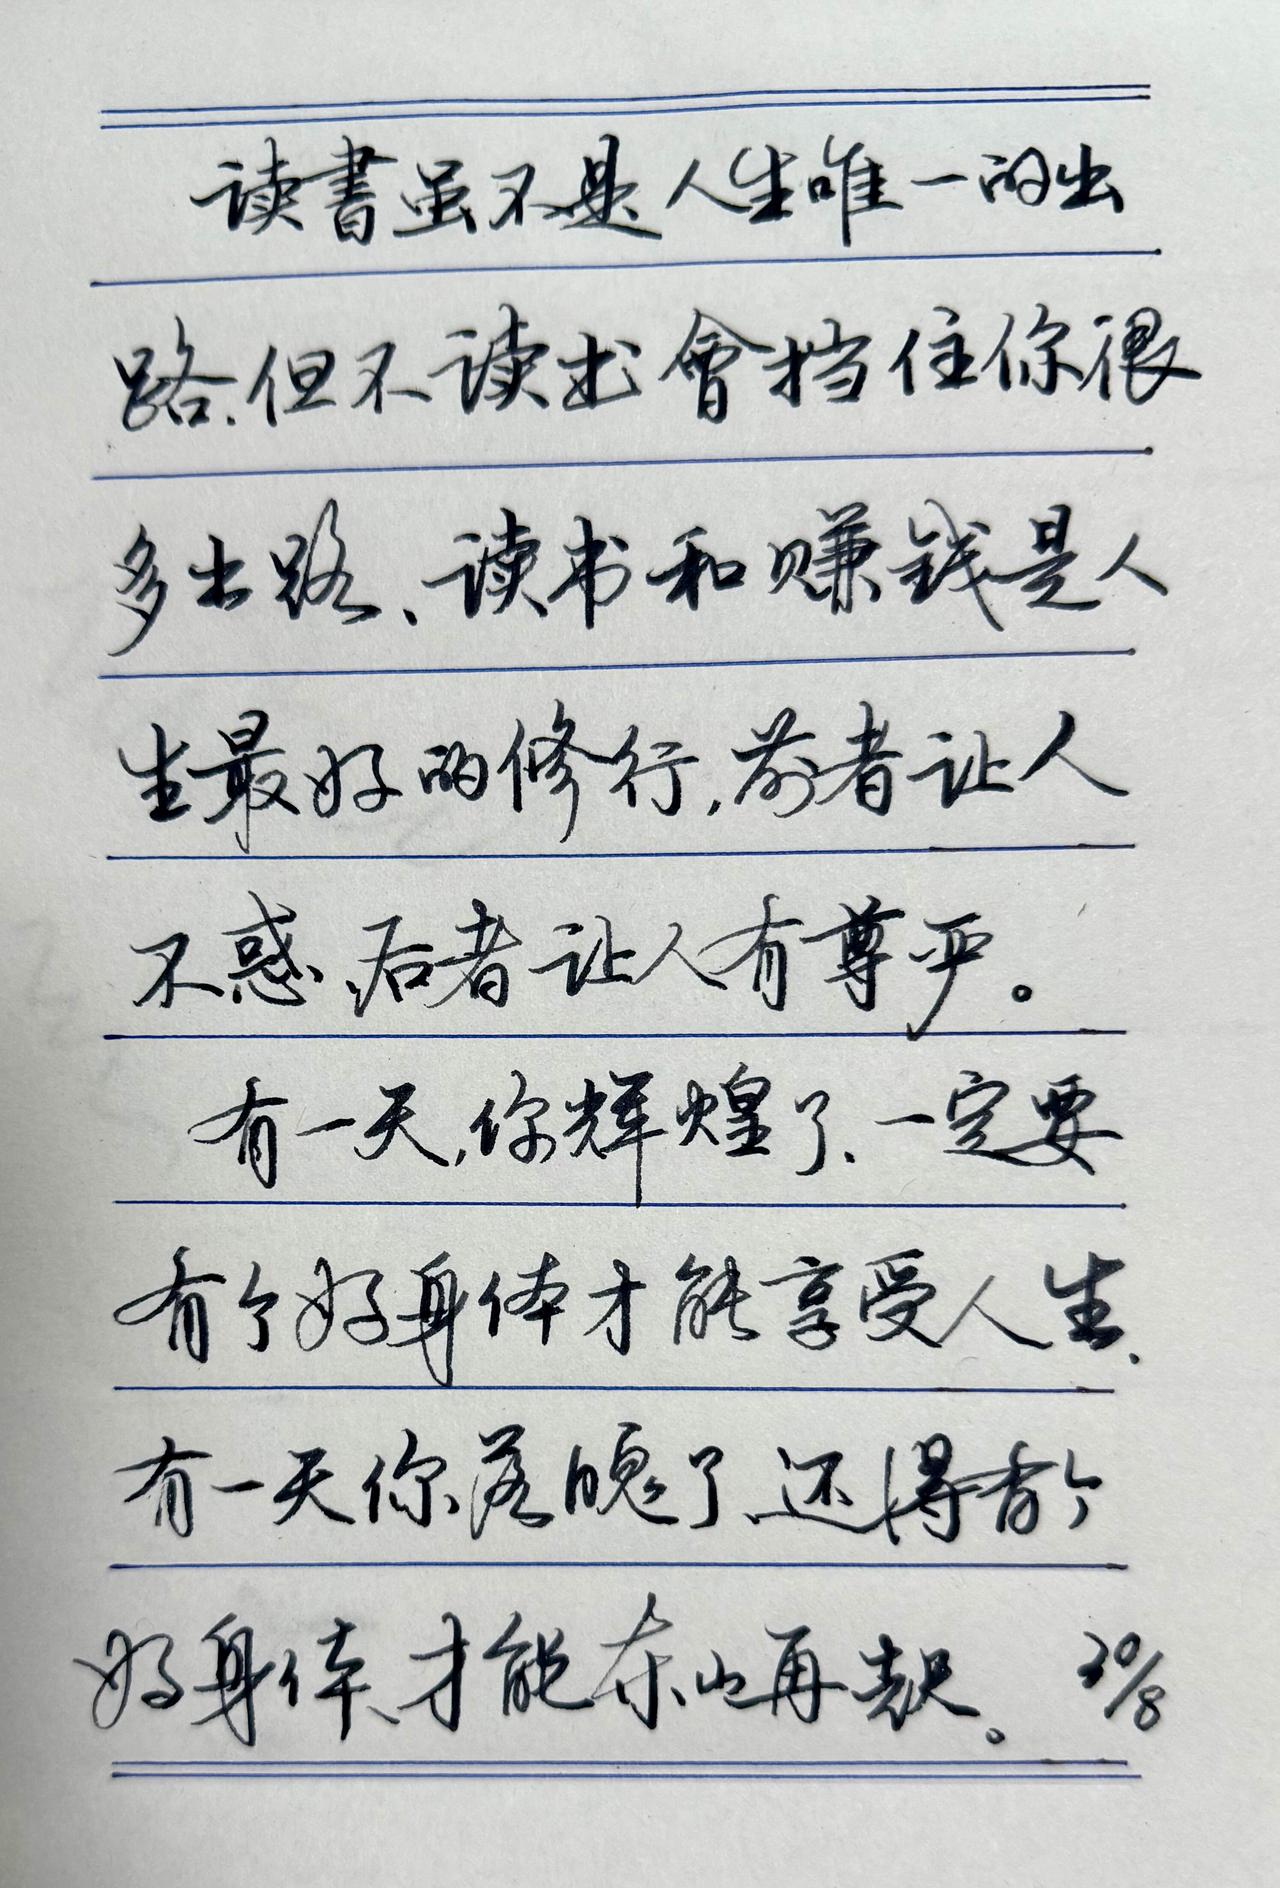 读書虽不是人生唯一的出
路.但不读书會挡住你很
多出路、读书和赚钱是人
生最好的修行,前者让人
不惑、后者让人有尊严。
有一天,你辉煌了、一定要
有个好身体才能享受人生、
有一天你落魄了、还得有个
好身体、才能东山再起。 30/8